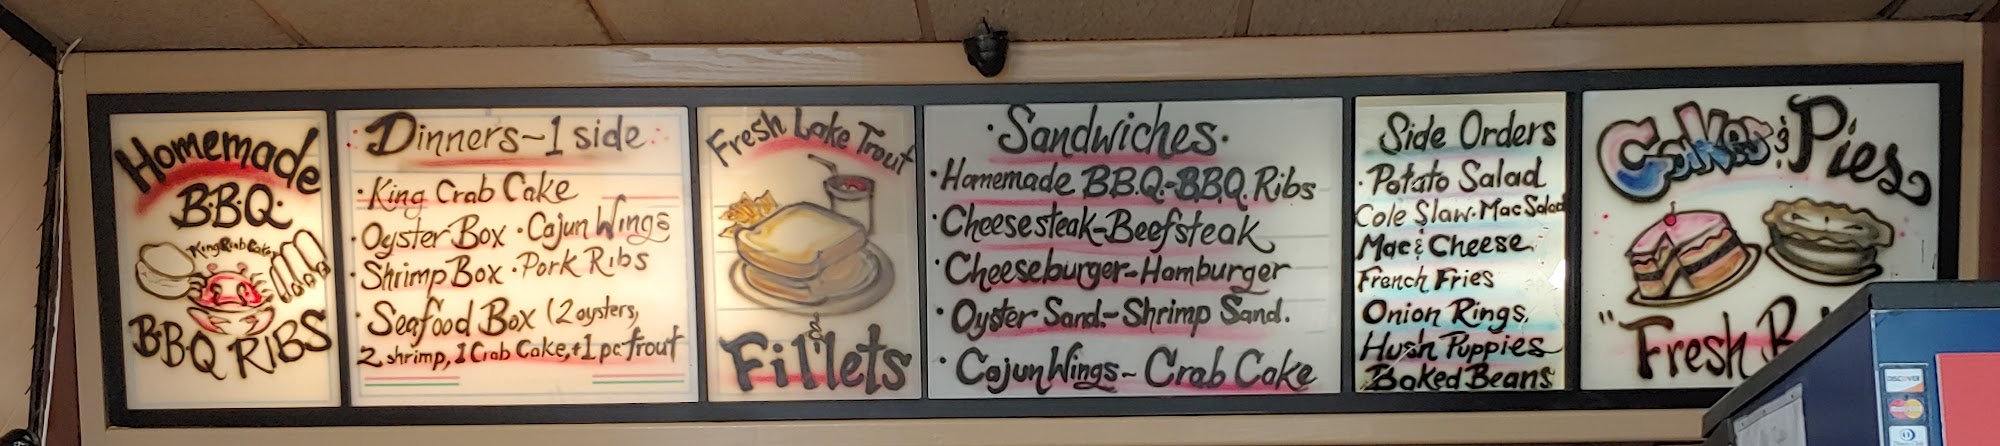 Homemade
B.B.Q.
King Crab Cake
BBQ RIBS
Dinners~1 side
King Crab Cake
Oyster Box · Cajun Wings
Shrimp Box · Pork Ribs
Seafood Box (2 oysters,
2 shrimp, 1 Crab Cake, + 1 pc trout
Fresh Lake Trout
&
Fillets
Sandwiches
Homemade B.B.Q.-B.B.Q. Ribs
Cheesesteak-Beefsteak
Cheeseburger-Hamburger
Oyster Sand.-Shrimp Sand.
Cajun Wings- Crab Cake
Side Orders
Potato Salad
Cole Slaw. Mac Salad
Mac & Cheese
French Fries
Onion Rings,
Hush Puppies
Baked Beans
Cakes & Pies
"Fresh
DISCOVER
MasterCard